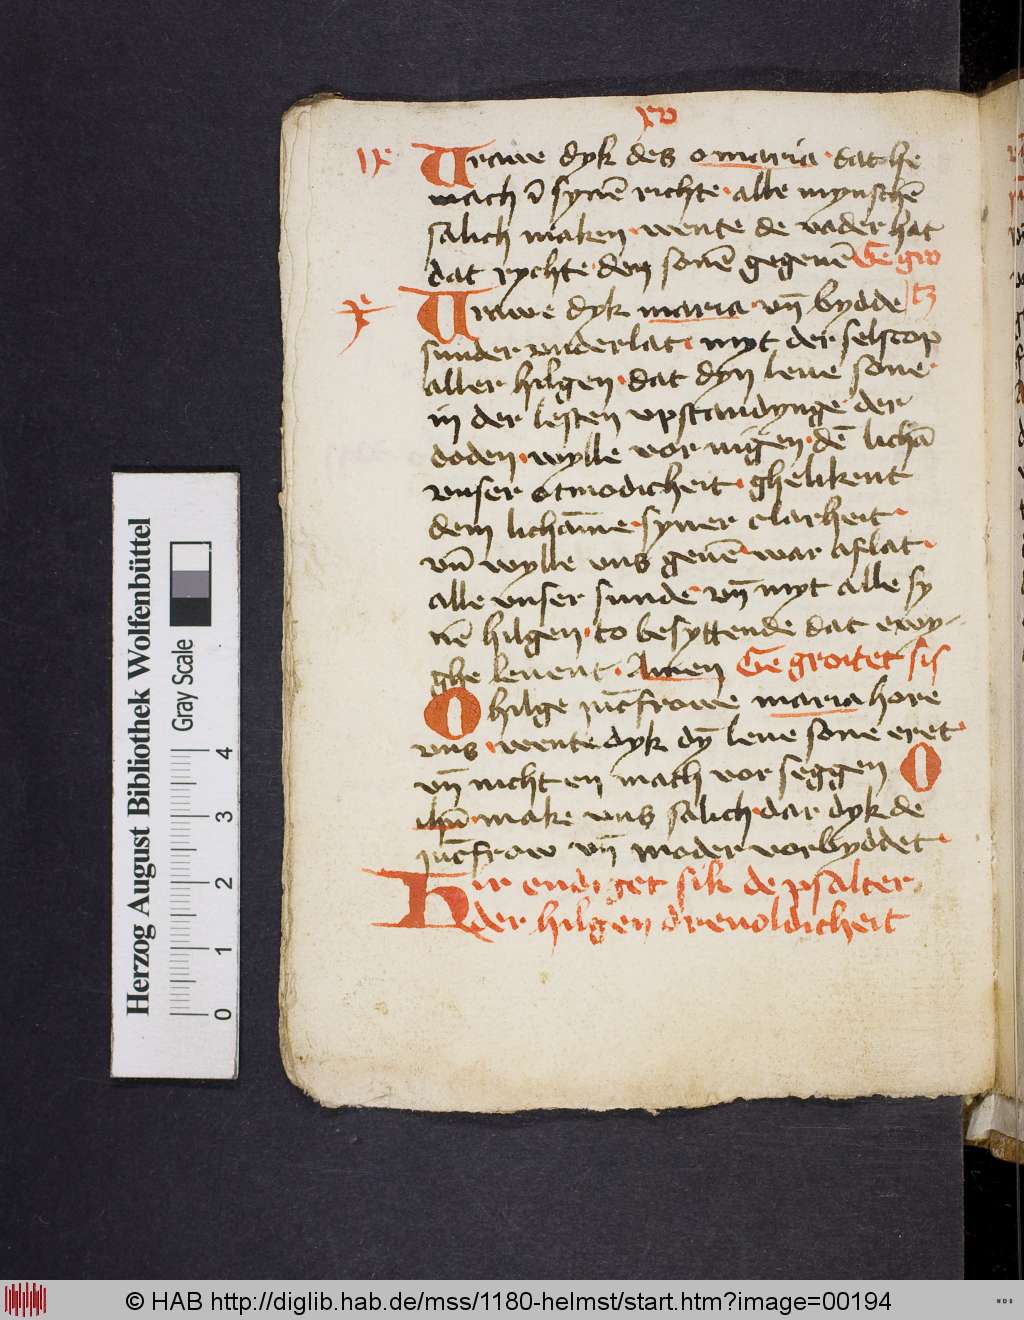 xv
ixᵉ Vrawe dyk des o maria · dat he
mach ī synē richte · alle mynschē
salich maken · wente de vader hat
dat rychte · den sonē gegeuē Ge gro
xᵉ Vrawe dyk maria · vn̄ bydde tz
sunder vnderlat · myt der selscop
aller hilgen · dat dyn leue sone ·
in der lesten vpstandynge der
doden · wylle vor nigen · dē lichā
vnser otmodicheit · ghelikent
dem lichāme · syner clarheit ·
vn̄ wylle vns geuē · war aflat ·
alle vnser sunde · vn̄ myt alle sy
nē hilgen · to besyttende dat ewy-
ghe leuent · Amen Ge groitet sis
O hilge jūcfrowe maria hore
vns · wente dyk dȳ leue sone eret ·
vn̄ nicht en mach vor seggen O
ihū · make vns salich · dar dyk de
jūcfrow vn̄ moder vorbyddet ·
Hir endiget sik de psalter
der hilgen dreuoldicheit
Herzog August Bibliothek Wolfenbüttel
Gray Scale
0 1 2 3 4
© HAB http://diglib.hab.de/mss/1180-helmst/start.htm?image=00194